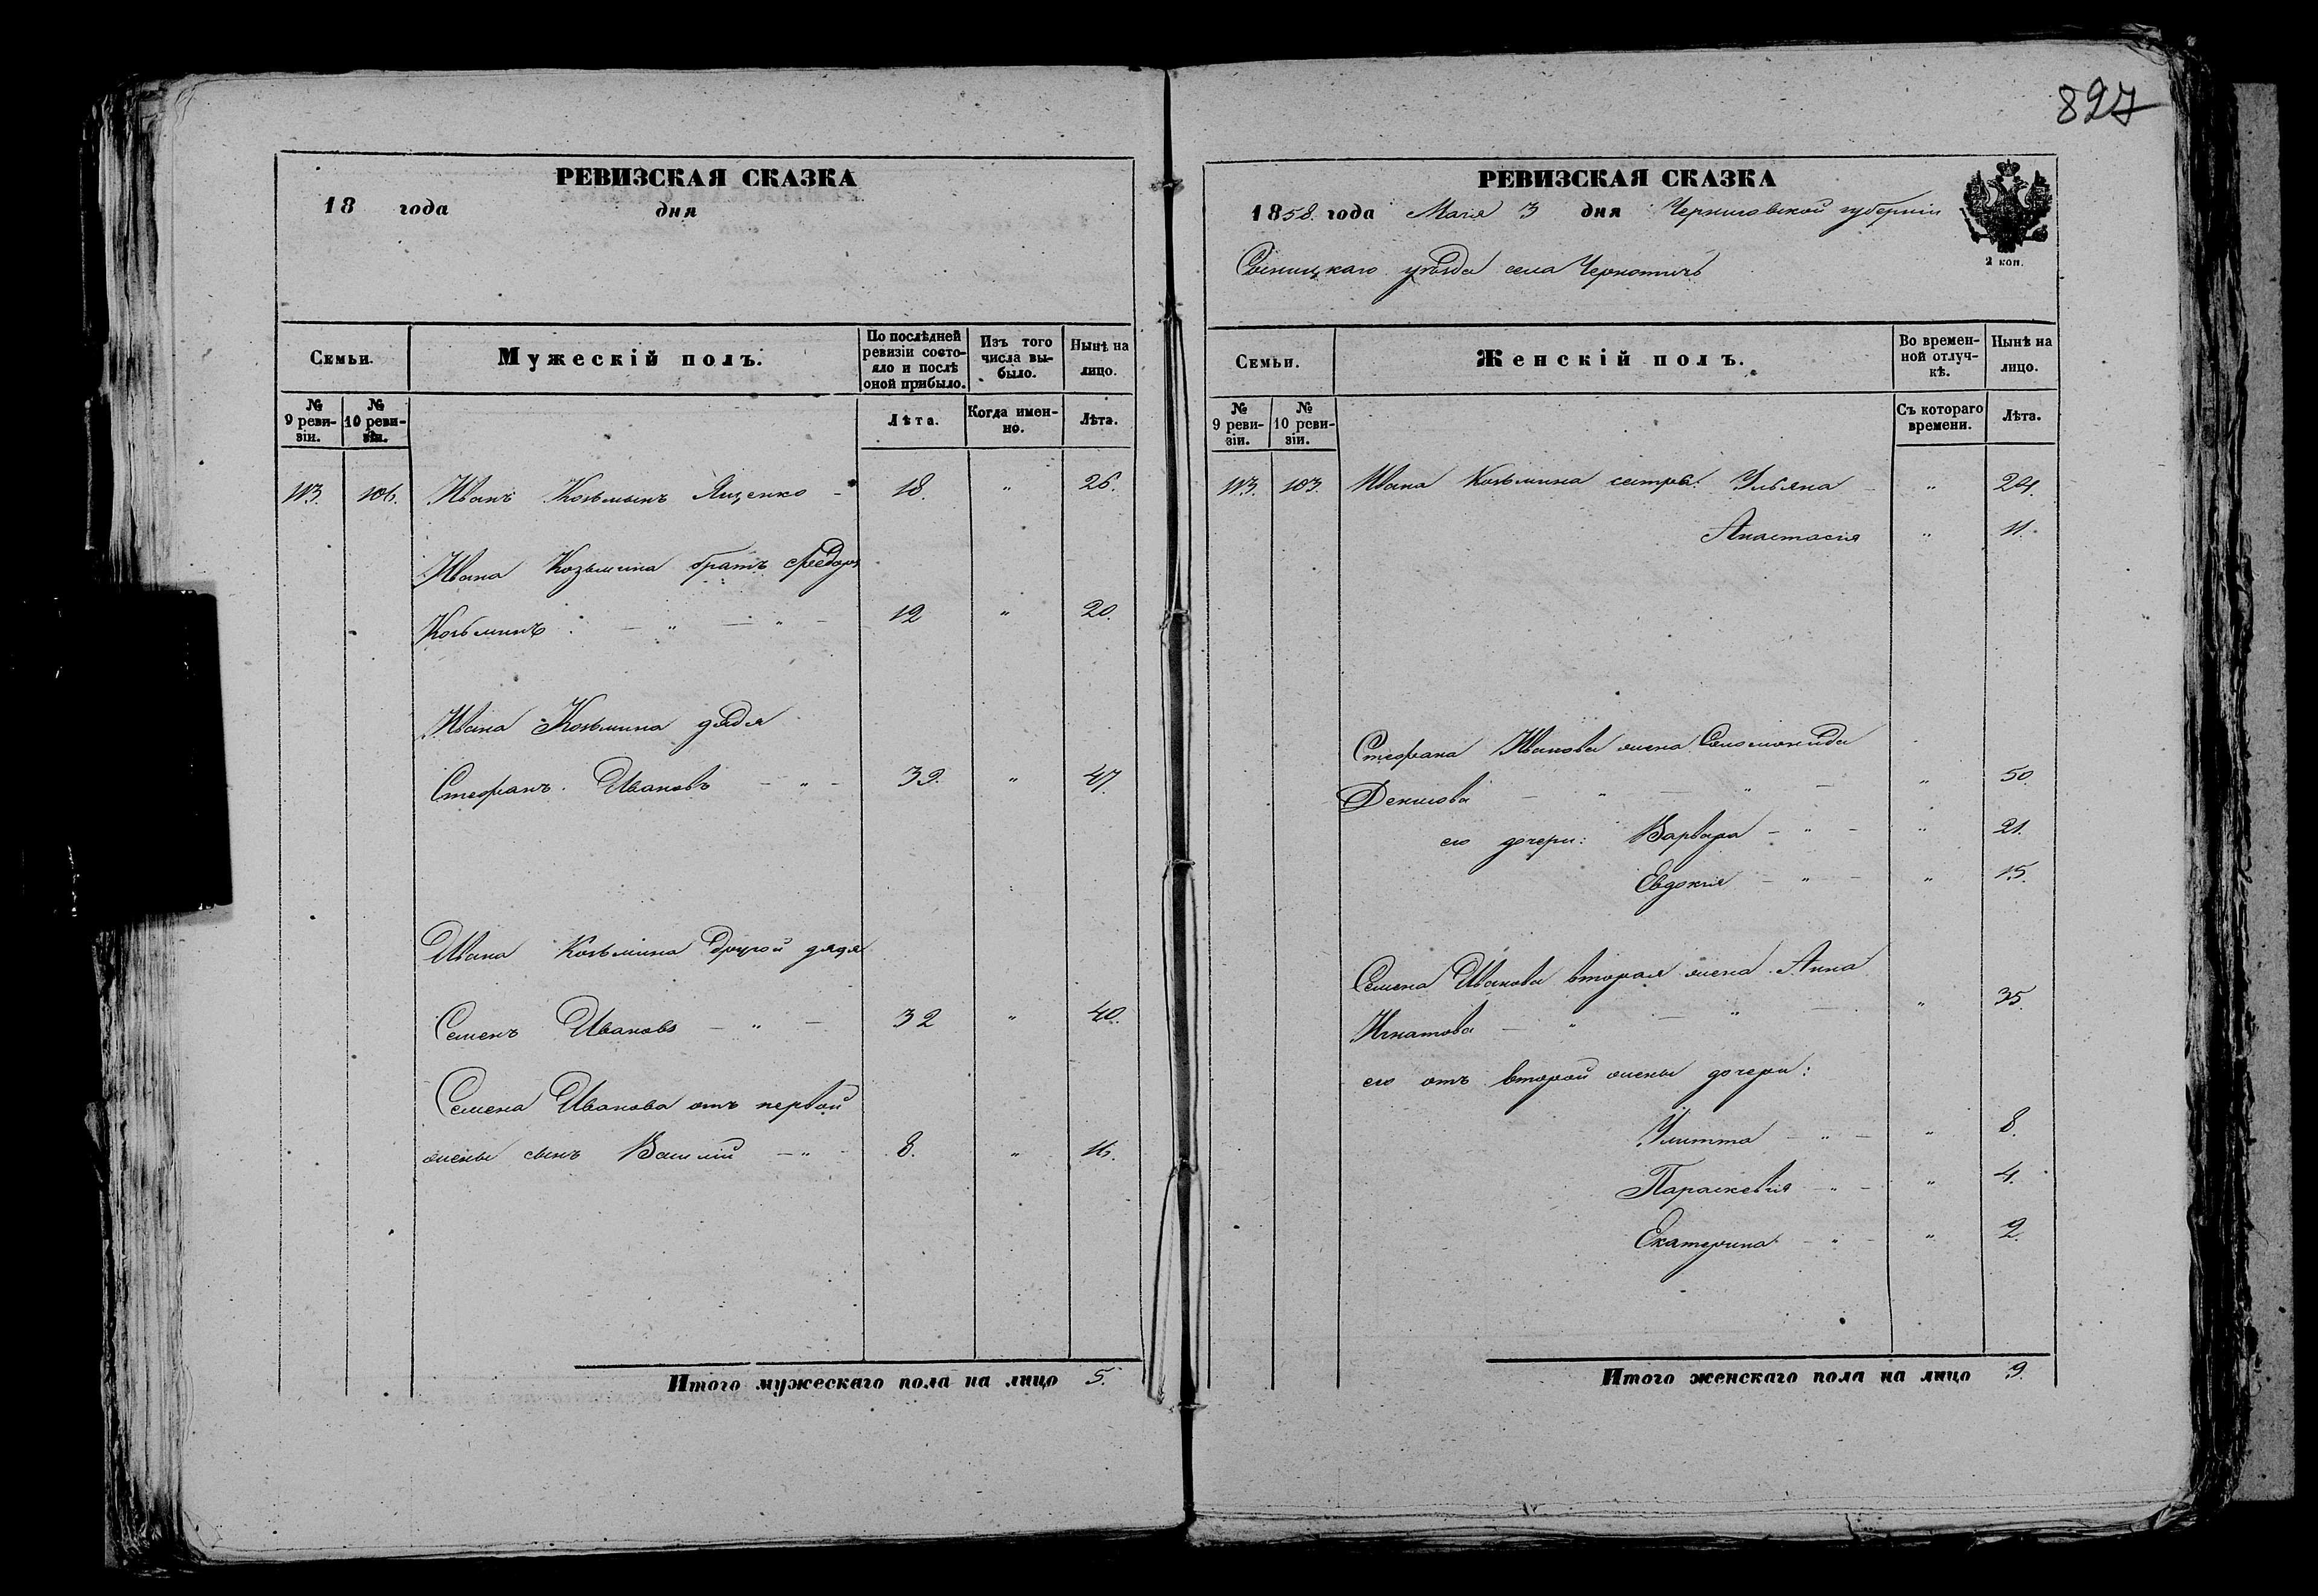 827
РЕВИЗСКАЯ СКАЗКА
18 года дня
Семьи.
Мужескій полъ.
По послѣдней ревизіи состояло и послѣ оной прибыло.
Изъ того числа выбыло.
Нынѣ на лицо.
№ 9 ревизіи.
№ 10 ревизіи.
Лѣта.
Когда именно.
Лѣта.
113. 106. Иванъ Козьминъ Ященко - 18. " 26.
Ивана Козьмина братъ Федоръ
Козьминъ - " - " - 12 " 20.
Ивана Козьмина дядя
Стефанъ Ивановъ - " - 39. " 47.
Ивана Козьмина другой дядя
Семенъ Ивановъ - " - 32 " 40.
Семена Иванова отъ первой
жены сынъ Василій - " - 8. " 16.
Итого мужескаго пола на лицо 5.
РЕВИЗСКАЯ СКАЗКА
1858. года Маія 3 дня Черниговской губерніи
Сосницкаго уѣзда села Чернотичъ
2 коп.
Семьи.
Женскій полъ.
Во временной отлучкѣ.
Нынѣ на лицо.
№ 9 ревизіи.
№ 10 ревизіи.
Съ котораго времени.
Лѣта.
113. 103. Ивана Козьмина сестра: Ульяна - " 24.
Анастасія " 11.
Стефана Иванова жена Соломонида
Денисова - " - " - " 50.
его дочери: Варвара - " - " 21.
Евдокія - " - " 15.
Семена Иванова вторая жена Анна
Игнатова - " - " - " 35.
его отъ второй жены дочери:
Улитта - " - " 8.
Параскевія - " - " 4.
Екатерина - " - " 2.
Итого женскаго пола на лицо 9.